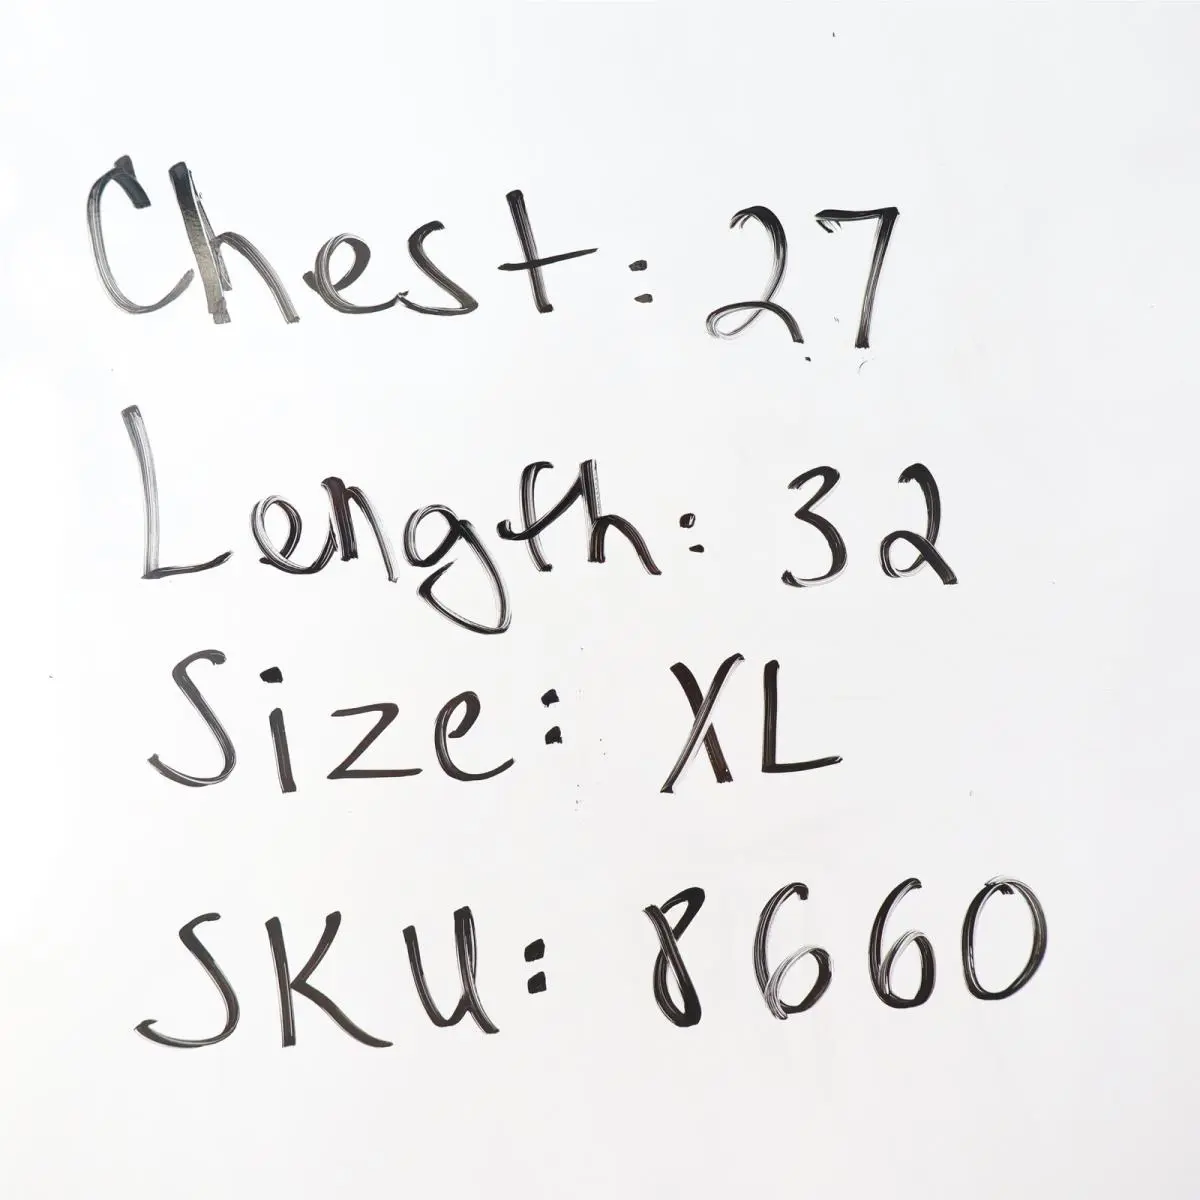 Chest: 27
Length: 32
Size: XL
SKU: 8660